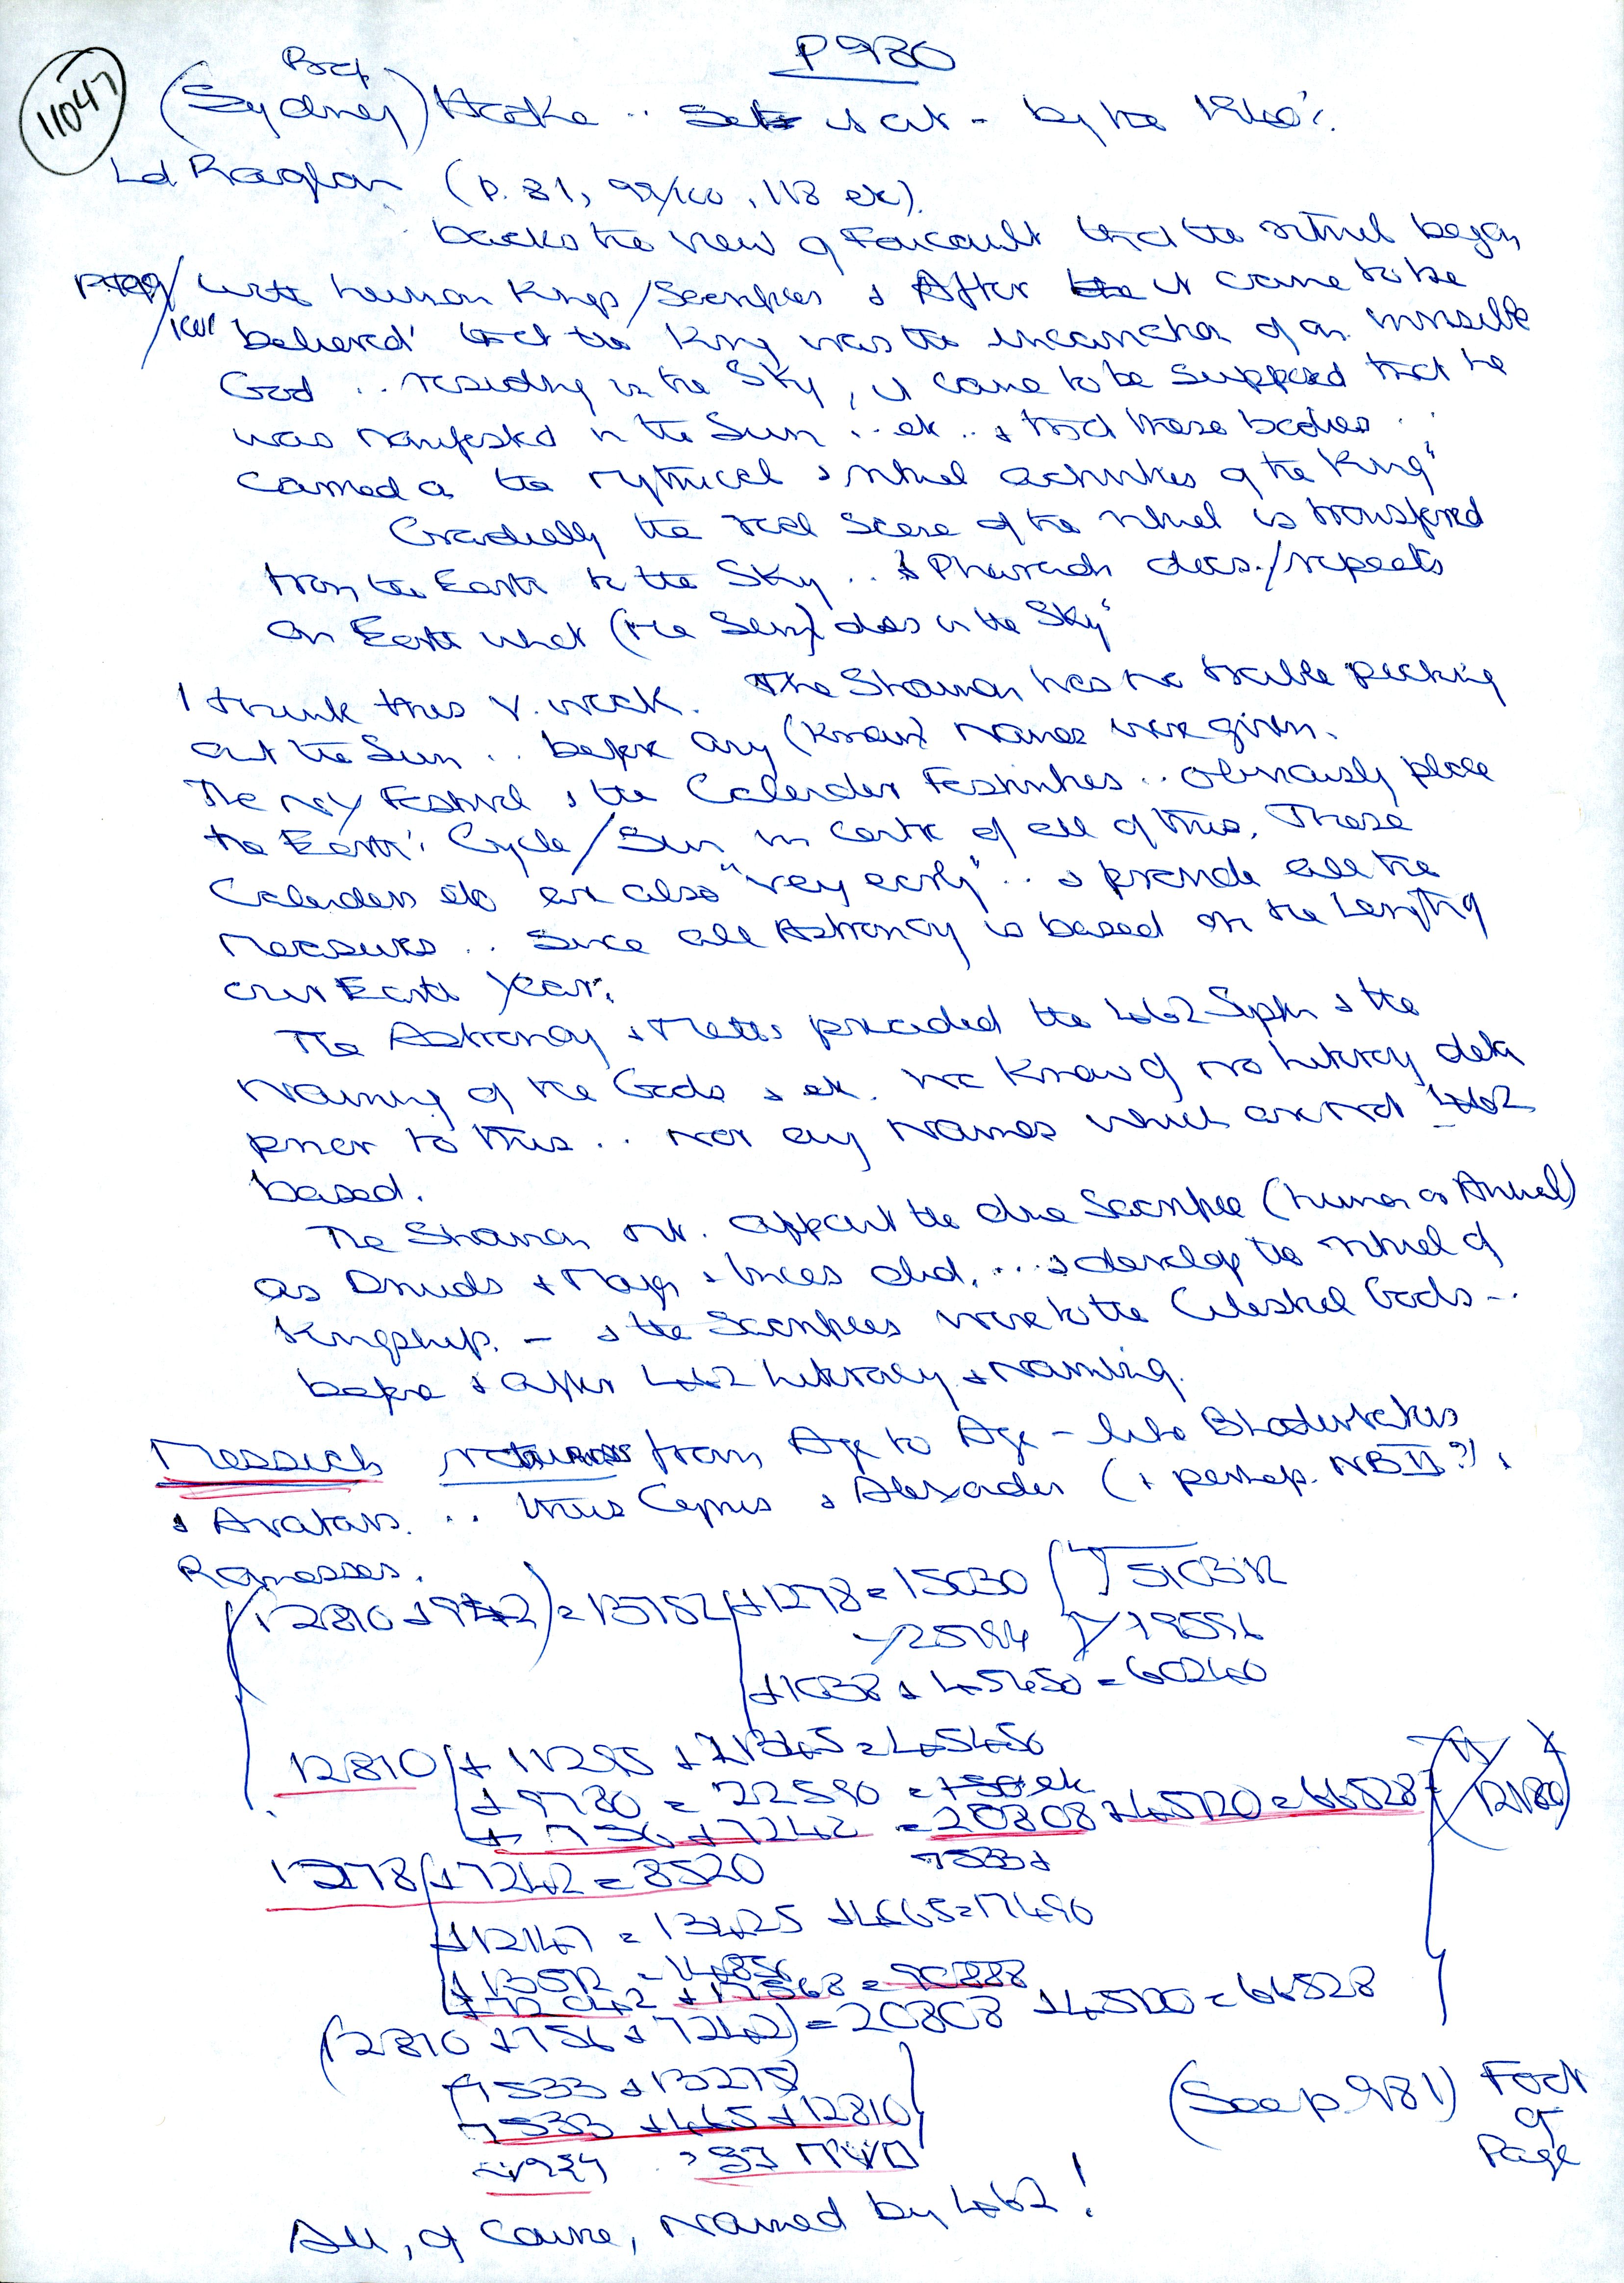 P980
11047
Prof.
(Sydney) Hooke .. Sets it out - by the 1940's.
Ld Raglan (p. 81, 99/100, 118 etc).
backs the view of Foucault that the ritual began
with human Kings/Sacrifices & After it came to be
believed' that the King was the incarnation of an invisible
God .. residing in the Sky, it came to be supposed that he
was manifested in the Sun .. etc .. & that these bodies ..
carried on the mythical & ritual activities of the King"
Gradually the real Scene of the ritual is transferred
from the Earth to the Sky .. & Pharaoh does./repeats
on Earth what (the Sun) does in the Sky"
I think this v. weak. The Shaman has no trouble picking
out the Sun .. before any (known) names were given.
The NY Festival & the Calendar Festivities .. obviously place
the Earth's Cycle/Sun in centre of all of this. These
Calendars etc are also "very early" .. & provide all the
Measures .. Since all Astronomy is based on the Length of
our Earth Year.
The Astronomy & Maths preceded the 4o62 System & the
Naming of the Gods & etc. We know of no literary data
prior to this .. nor any Names which are not 4o62
based.
The Shaman appoint the due Sacrifice (human or Animal)
as Druids & Maya & Incas did. ... & develop the ritual of
Kingship. - & the Sacrifices were to the Celestial Gods -..
before & after 4o62 literacy & Naming.
Messiah returns from Age to Age - like
& Avatars. .. thus Cyrus & Alexander (& perhap. NB II?) &
Ramesses.
(12810 + 942) = 13752 + 1278 = 15030
+1038 + 45450 = 60240
12810 + 11295 + 21345 = 45450
+ 9780 = 22590
+ 756 + 7242 = 20808 + 45720 = 66528
7533 +
1278 + 7242 = 8520
+ 12147 = 13425 + 4065 = 17490
(12810 + 756 + 7242) = 20808 + 45720 = 66528
7533 + 13275
7533 + 465 + 12810
(See p 981) Foot
of
Page
All, of Course, Named by 4o62!